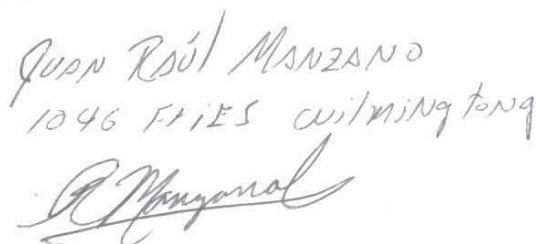 JUAN RAÚl MANZANO
1046 FRiES wilmiNgtoNg
R Manzano